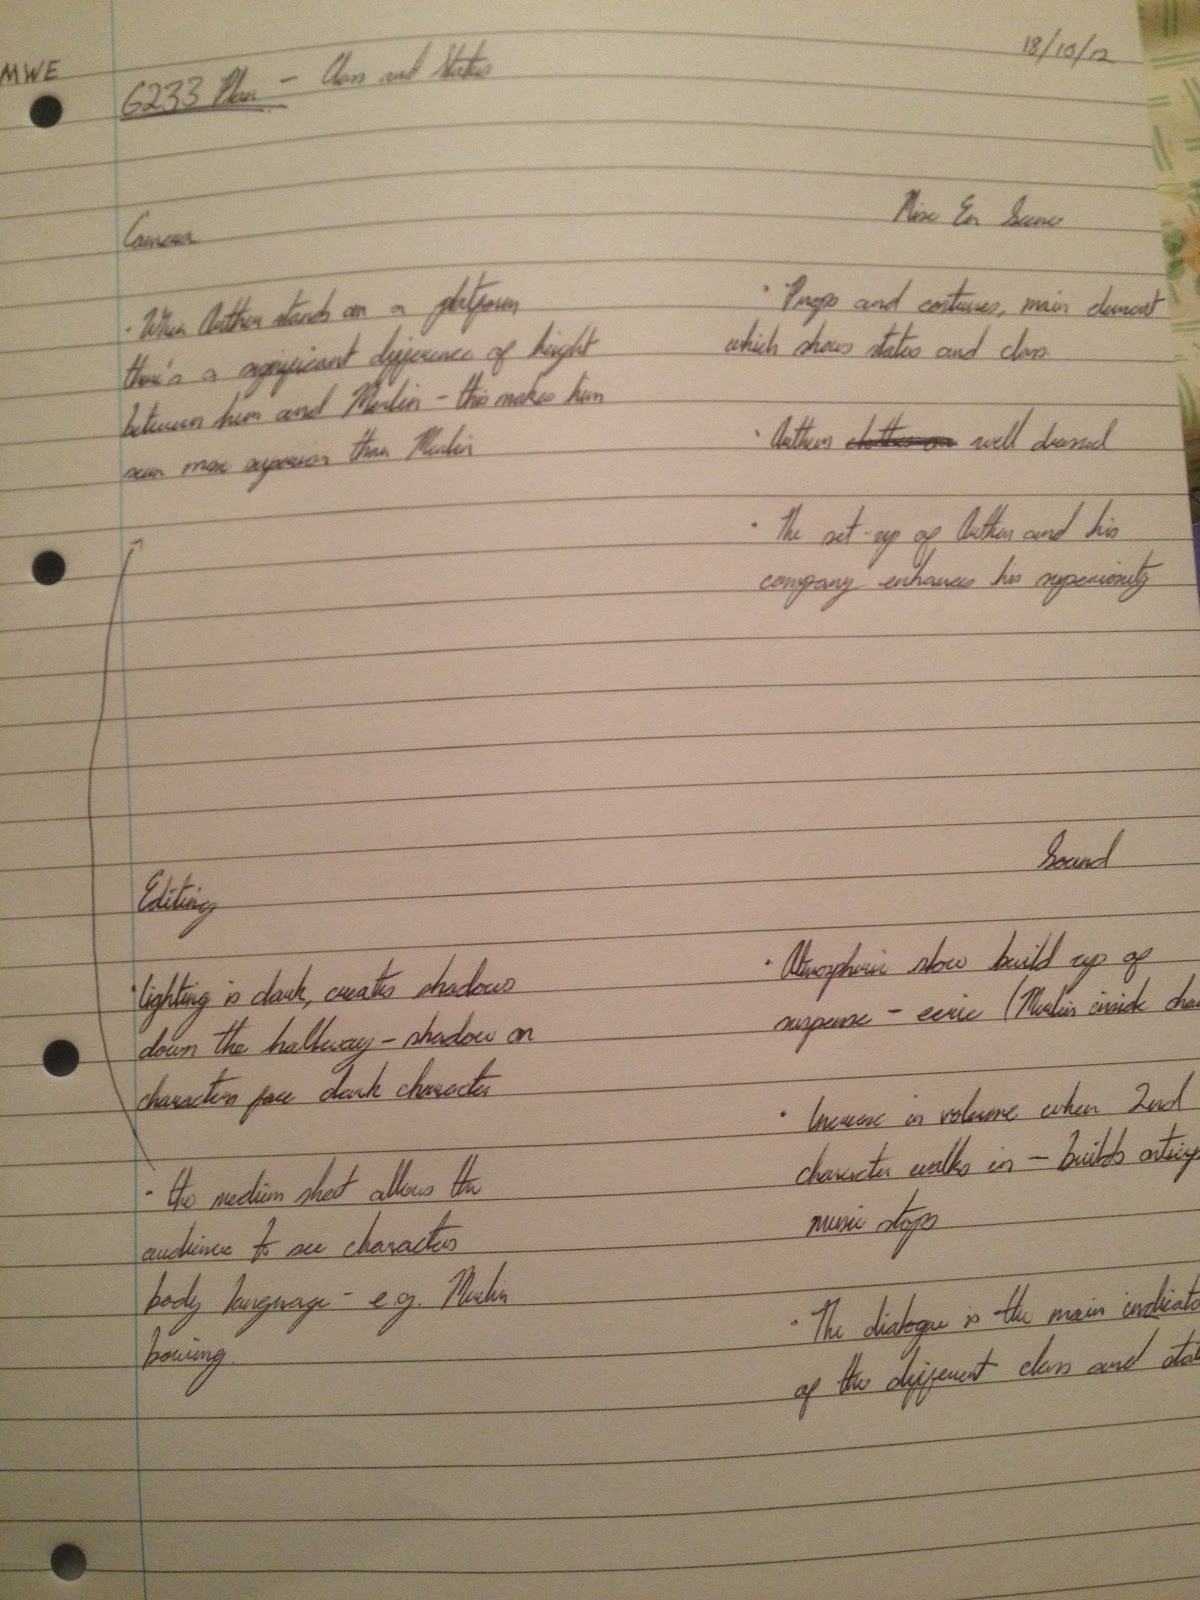 MWE
18/10/12
G233 Plan - Class and Status
Camera
• When Arthur stands on a platform
there's a significant difference of height
between him and Merlin - this makes him
seem more superior than Merlin
Mise En Scene
• Props and costumes, main element
which shows status and class.
• Arthurs well dressed
• The set-up of Arthur and his
company enhances his superiority
Editing
• lighting is dark, creates shadows
down the hallway - shadow on
characters face dark character
- the medium shot allows the
audience to see characters
body language - e.g. Merlin
bowing.
Sound
• Atmospheric slow build up of
suspense - eerie (Merlin inside
• Increase in volume when 2nd
character walks in - builds
music stops
• The dialogue is the main
of the different class and